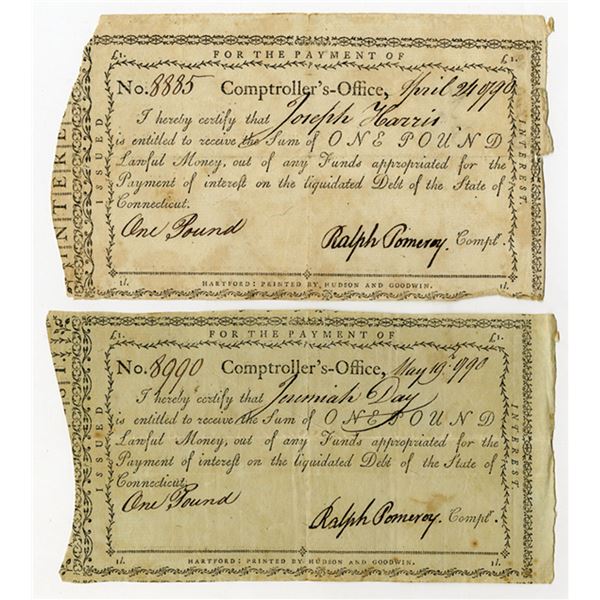 FOR THE PAYMENT OF
£1. £1.
No. 8885 Comptroller's-Office, April 24 1790
I hereby certify that Joseph Harris
is entitled to receive the Sum of ONE POUND
Lawful Money, out of any Funds appropriated for the
Payment of interest on the liquidated Debt of the State of
Connecticut.
One Pound Ralph Pomeroy. Compt'r.
1l. HARTFORD: PRINTED BY HUDSON AND GOODWIN. 1l.
ISSUED
INTEREST.
INTERE
FOR THE PAYMENT OF
£1. £1.
No. 8990 Comptroller's-Office, May 19th 1790
I hereby certify that Jeremiah Day
is entitled to receive the Sum of ONE POUND
Lawful Money, out of any Funds appropriated for the
Payment of interest on the liquidated Debt of the State of
Connecticut.
One Pound Ralph Pomeroy. Compt'r.
1l. HARTFORD: PRINTED BY HUDSON AND GOODWIN. 1l.
ISSUED
INTEREST.